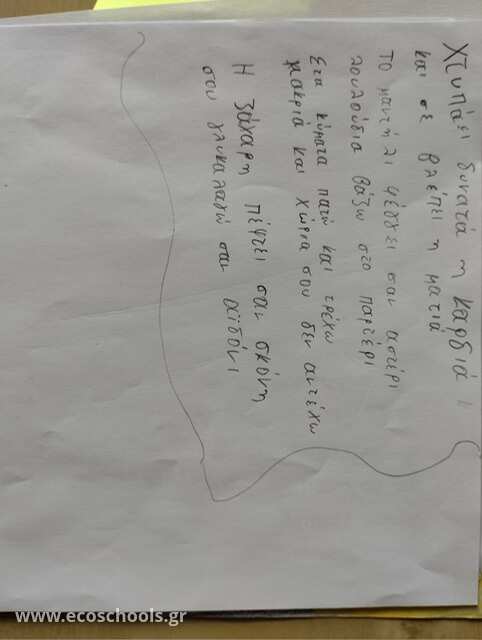 Χτυπάει δυνατά η καρδιά
και σε βλέπει η ματιά
Το μαντήλι φέγγει σαν αστέρι
λουλούδια βάζω στο παρτέρι
Στα κύματα πατώ και τρέχω
μακριά και χώρια σου δεν αντέχω
Η ζάχαρη πέφτει σαν σκόνη
σου γλυκολαλώ σαν αϊδόνι
www.ecoschools.gr